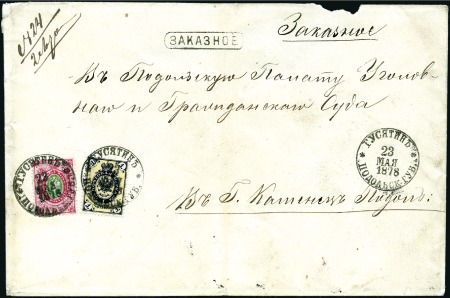 №24
2 лота
ЗАКАЗНОЕ
Заказное
Въ Подольскую Палату Уголов-
наго и Гражданскаго Суда
ГУСЯТИНЪ
23
МАЯ
1878
ПОДОЛЬСК. ГУБ.
ГУСЯТИНЪ
ГУСЯТИНЪ
Въ Г. Каменецъ Подол: